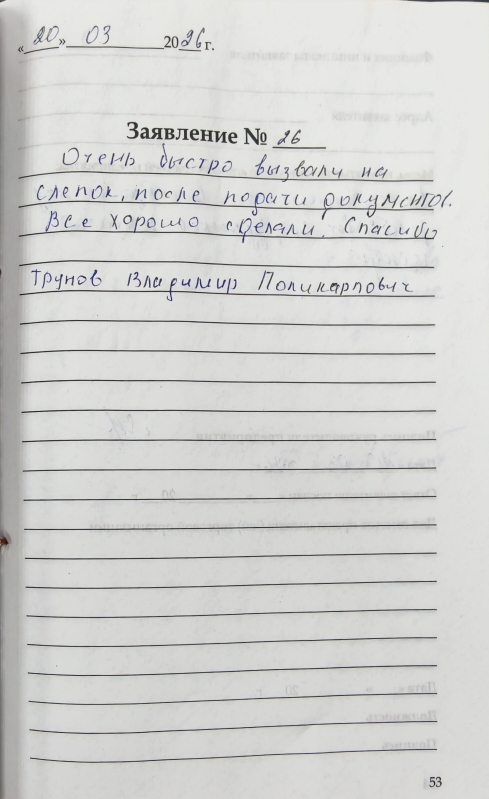 «20» 03 2026 г.
Заявление № 26
Очень быстро вызвали на
слепок, после подачи документов.
Все хорошо сделали. Спасибо
Трунов Владимир Поликарпович
53